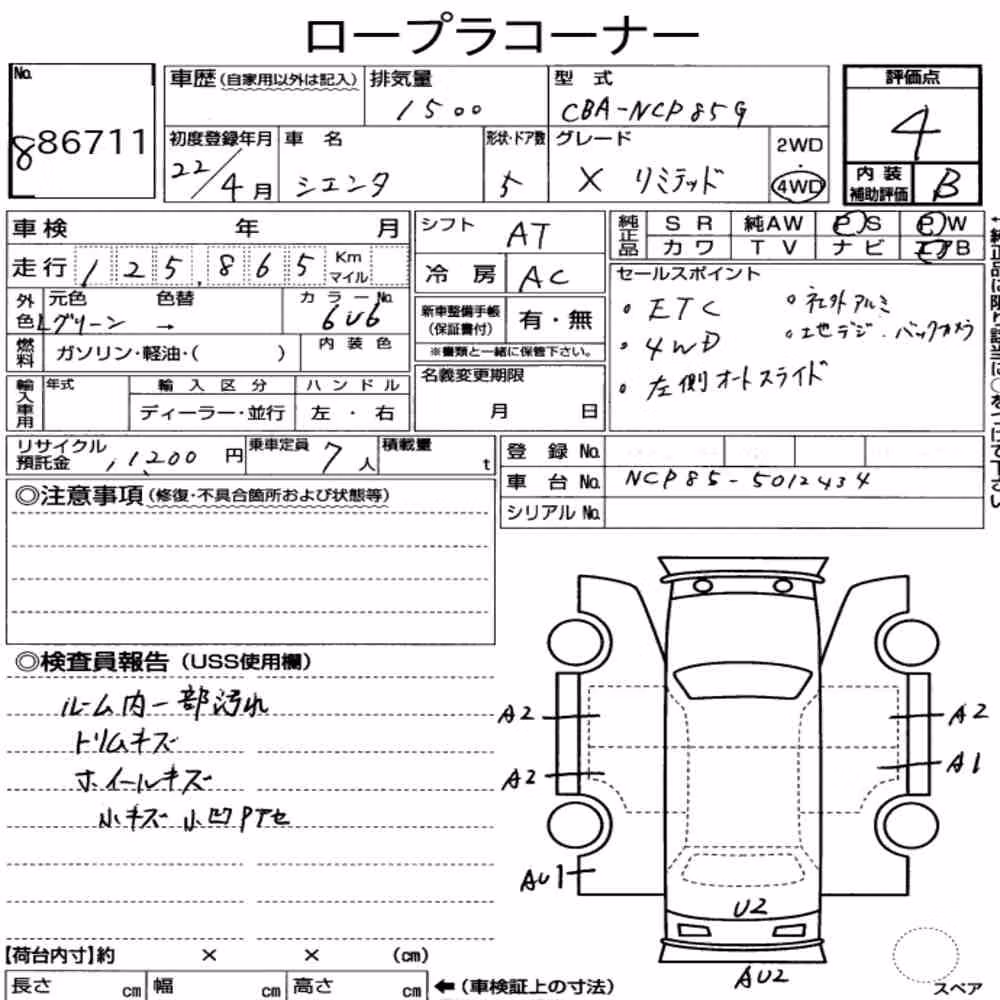 ロープラコーナー
No.
886711
車歴(自家用以外は記入)
排気量
1500
型 式
CBA-NCP85G
評価点
4
初度登録年月
22/4月
車 名
シエンタ
形状・ドア数
5
グレード
X リミテッド
2WD
・
4WD
内 装
補助評価
B
車検 年 月
走行 125,865 Km
マイル
シフト
AT
冷 房
AC
純正品
S R 純AW P S P W
カ ワ T V ナ ビ エアB
外色
元色 色替
Lグリーン →
カ ラ ー No.
6U6
新車整備手帳
(保証書付)
有・無
※書類と一緒に保管下さい。
セールスポイント
・ETC
・4WD
・左側オートスライド
・社外アルミ
・地デジ.バックカメラ
燃料
ガソリン・軽油・( )
内 装 色
名義変更期限
月 日
輸入車用
年式
輸 入 区 分
ディーラー・並行
ハ ン ド ル
左 ・ 右
リサイクル
預託金
11200 円
乗車定員
7人
積載量
t
登 録 No.
車 台 No.
NCP85-5012434
シリアル No.
◎注意事項(修復・不具合箇所および状態等)
◎検査員報告(USS使用欄)
ルーム内一部汚れ
トリムキズ
ホイールキズ
小キズ小凹Pアセ
A2
A2
A2
A1
AU1
U2
AU2
スペア
【荷台内寸】約 × × (cm)
長さ cm
幅 cm
高さ cm
←(車検証上の寸法)